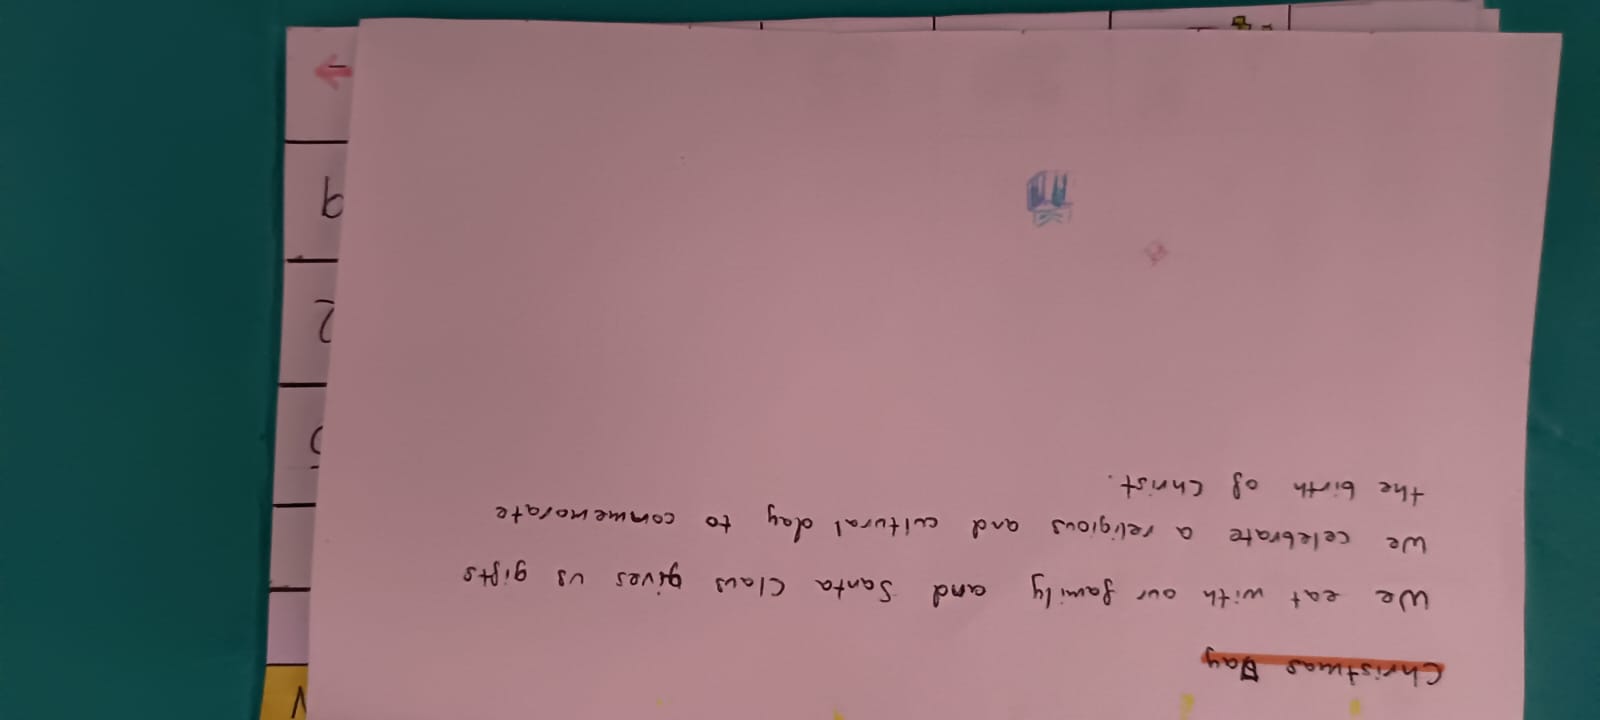 Christmas Day
We eat with our family and Santa Claus gives us gifts
We celebrate a religious and cultural day to commemorate
the birth of Christ.
2
9